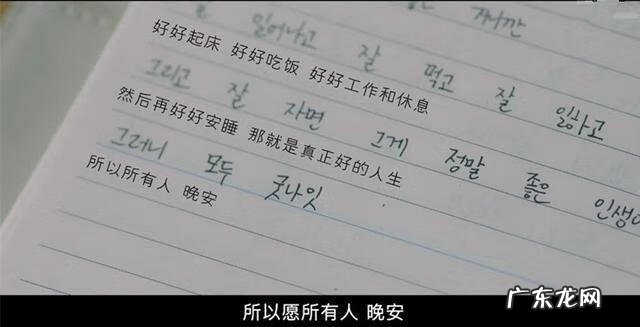 일어나고 잘 먹고 잘 일하고
好好起床 好好吃饭 好好工作和休息
그리고 잘 자면 그게 정말 좋은 인생이
然后再好好安睡 那就是真正好的人生
그러니 모두 굿나잇
所以所有人 晚安
所以愿所有人 晚安
广东龙网